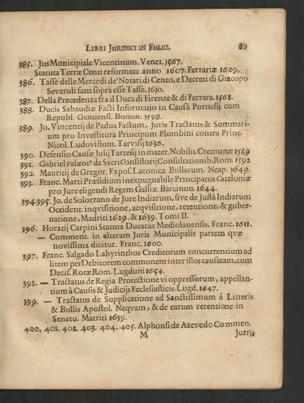 LIBRI JURIDICI IN FOLIO. 89
385. Jus Municipale Vicentinum. Venet. 1567.
Statuta Terræ Centi reformata anno 1607. Ferrariæ 1609.
386. Tasse delle Mercedi de' Notari di Cento, e Decreti di Giacopo
Severoli fatti soprà esse Tasse. 1630.
387. Della Precedenza frà il Duca di Firenze & di Ferrara. 1568.
388. Ducis Sabaudiæ Facti Informatio in Causa Possessorij cum
Republ. Genuensi. Bonon. 1598.
389. Jo. Vincentij de Padua Factum, Juris Tractatus & Summari-
um pro Investitura Principatum Plumbini contra Princ.
Nicol. Ludovisium. Tarvisij 1636.
390. Defensio Causæ Julij Tartesij in mater. Nobilit. Cremonæ 1589
391. Gabriel Palæot° de Sacri Consistorij Consultationib. Rom. 1592
392. Mauritij de Gregor. Expos. Laconica Bullarum. Neap. 1649.
393. Franc. Marti Præsidium inexpugnabile Principatus Cataloniæ
pro Jure eligendi Regem Galliæ. Barcinon. 1644.
394. 395. Jo. de Solorzano de Jure Indiarum, sive de Justa Indiarum
Occident. inquisitione, acquisitione, retentione, & guber-
natione, Madriti 1629. & 1639. Tomi II.
396. Horatij Carpini Statuta Ducatus Mediolanensis. Franc. 1611.
— Comment. in alteram Juris Municipalis partem quæ
novissima dicitur. Franc. 1600.
397. Franc. Salgado Labyrinthus Creditorum concurrentium ad
litem per Debitorem communem inter illos causatam, cum
Decis. Rotæ Rom. Lugduni 1654.
398. — Tractatus de Regia Protectione vi oppressorum, appellan-
tium à Causis & Judicijs Ecclesiasticis. Lugd. 1647.
399. — Tractatus de Supplicatione ad Sanctissimum à Litteris
& Bullis Apostol. Nequam, & de earum retentione in
Senatu. Matriti 1639.
400, 401. 402. 403. 404. 405. Alphonsi de Azevedo Commen.
M Juris